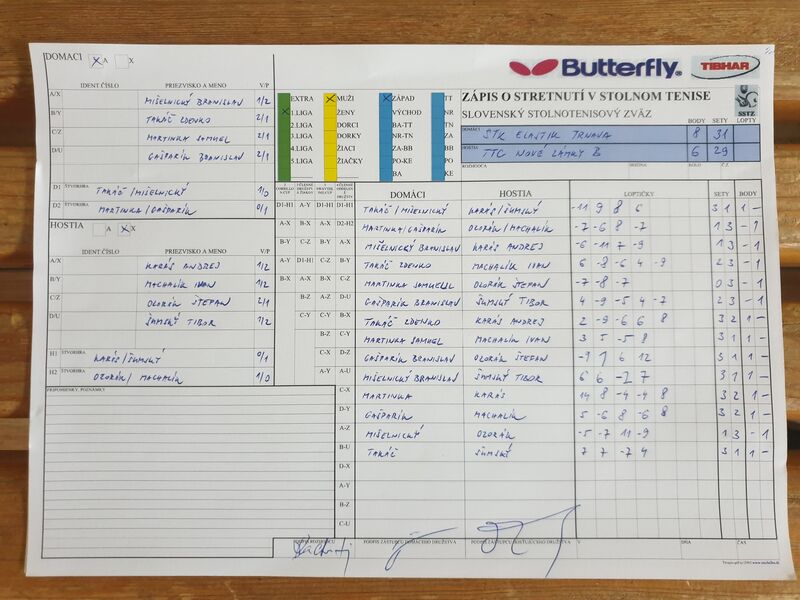 DOMÁCI X X
IDENT. ČÍSLO PRIEZVISKO A MENO V/P
A/X MIŠELNICKÝ BRANISLAV 1/2
B/Y TAKÁČ ZDENKO 2/1
C/Z MARTINKA SAMUEL 2/1
D/U GAŠPARÍK BRANISLAV 2/1
D1 ŠTVORHRA TAKÁČ/MIŠELNICKÝ 1/0
D2 ŠTVORHRA MARTINKA/GAŠPARÍK 0/1
HOSTIA A X X
IDENT. ČÍSLO PRIEZVISKO A MENO V/P
A/X KARÁS ANDREJ 1/2
B/Y MACHALÍK IVAN 1/2
C/Z OZORÁK ŠTEFAN 2/1
D/U ŠUMSKÝ TIBOR 1/2
H1 ŠTVORHRA KARÁS/ŠUMSKÝ 0/1
H2 ŠTVORHRA OZORÁK/MACHALÍK 1/0
PRIPOMIENKY, POZNÁMKY
Butterfly TIBHAR
EXTRA MUŽI ZÁPAD TT
1.LIGA ŽENY VÝCHOD NR
2.LIGA DORCI BA-TT TN
3.LIGA DORKY NR-TN ZA
4.LIGA ŽIACI ZA-BB BB
5.LIGA ŽIAČKY PO-KE PO
BA KE
ZÁPIS O STRETNUTÍ V STOLNOM TENISE
SLOVENSKÝ STOLNOTENISOVÝ ZVÄZ
SSTZ
BODY SETY LOPTY
DOMÁCI STK ELASTIK TRNAVA 8 31
HOSTIA TTC NOVÉ ZÁMKY B 6 29
ROZHODCA
DOMÁCI HOSTIA LOPTIČKY SETY BODY
D1-H1 A-Y D1-H1 D1-H1 TAKÁČ/MIŠELNICKÝ KARÁS/ŠUMSKÝ -11 9 8 6 3 1 1 -
A-X B-X A-X D2-H2 MARTINKA/GAŠPARÍK OZORÁK/MACHALÍK -7 -6 8 -7 1 3 - 1
B-Y C-Z B-Y A-X MIŠELNICKÝ BRANISLAV KARÁS ANDREJ -6 -11 7 -9 1 3 - 1
A-Y D1-H1 C-Z B-Y TAKÁČ ZDENKO MACHALÍK IVAN 6 -8 -6 4 -9 2 3 - 1
B-X A-X B-X C-Z MARTINKA SAMUEL OZORÁK ŠTEFAN -7 -8 -7 0 3 - 1
B-Z A-Z D-U GAŠPARÍK BRANISLAV ŠUMSKÝ TIBOR 4 -9 -5 4 -7 2 3 - 1
C-Y C-Y B-X TAKÁČ ZDENKO KARÁS ANDREJ 2 -9 -6 6 8 3 2 1 -
B-Z C-Y MARTINKA SAMUEL MACHALÍK IVAN 3 5 -5 8 3 1 1 -
C-X D-Z GAŠPARÍK BRANISLAV OZORÁK ŠTEFAN -9 1 6 12 3 1 1 -
A-Y A-U MIŠELNICKÝ BRANISLAV ŠUMSKÝ TIBOR 6 6 7 3 1 1 -
C-X MARTINKA KARÁS 14 8 -4 -4 8 3 2 1 -
D-Y GAŠPARÍK MACHALÍK 5 -6 8 -6 8 3 2 1 -
A-Z MIŠELNICKÝ OZORÁK -5 -7 11 -9 1 3 - 1
B-U TAKÁČ ŠUMSKÝ 7 7 -7 4 3 1 1 -
D-X
A-Y
B-Z
C-U
PODPIS ROZHODCU PODPIS ZÁSTUPCU DOMÁCEHO DRUŽSTVA PODPIS ZÁSTUPCU HOSŤUJÚCEHO DRUŽSTVA V DŇA ČAS